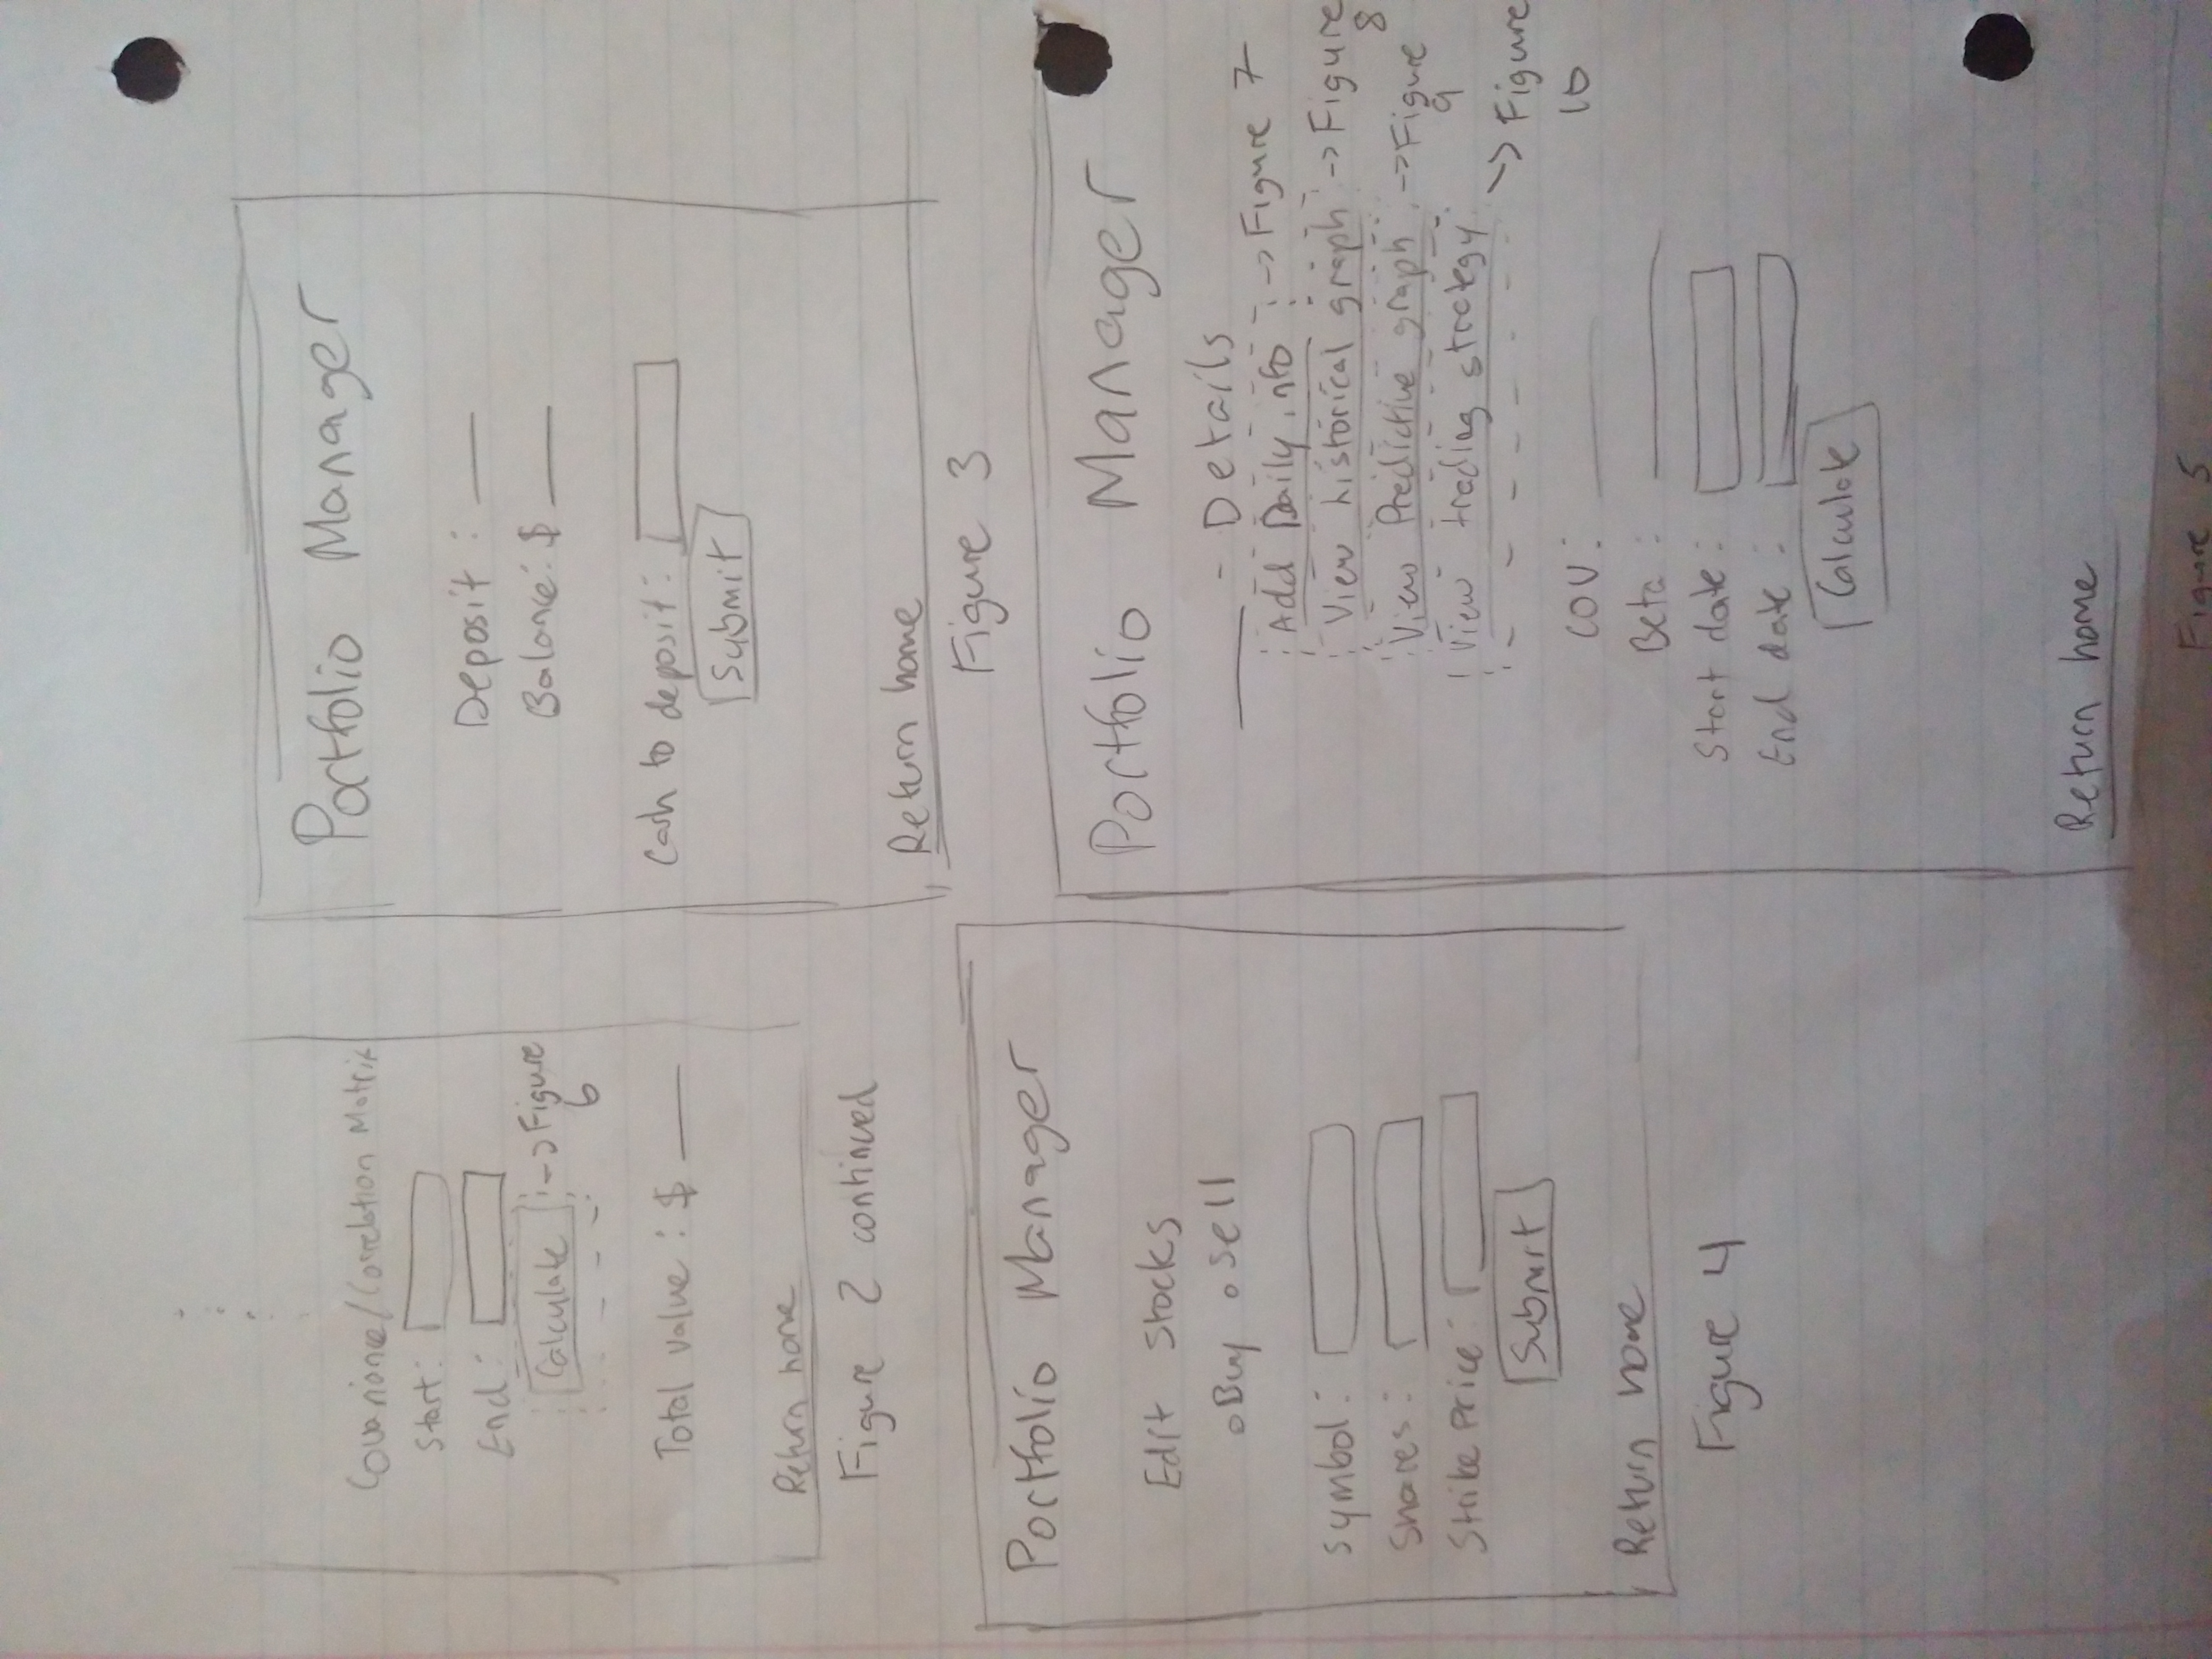 Covariance/Correlation Matrix
Start:
End:
Calculate -> Figure
6
Total value: $
Return home
Figure 2 continued
Portfolio Manager
Deposit:
Balance: $
Cash to deposit:
Submit
Return home
Figure 3
Portfolio Manager
Edit Stocks
Buy Sell
Symbol:
Shares:
Strike Price:
Submit
Return home
Figure 4
Portfolio Manager
- Details
Add Daily info -> Figure 7
View historical graph -> Figure
8
View Predictive graph -> Figure
9
View trading strategy -> Figure
10
COV:
Beta:
Start date:
End date:
Calculate
Return home
Figure 5